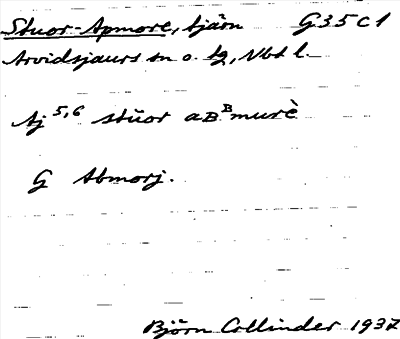 Stuor-Apmore, tjärn G35C1
Arvidsjaurs sn o. tg, Nbt l.
Aj 5,6 stŭor aʙᴮmurè
G Abmorj.
Björn Collinder 1937